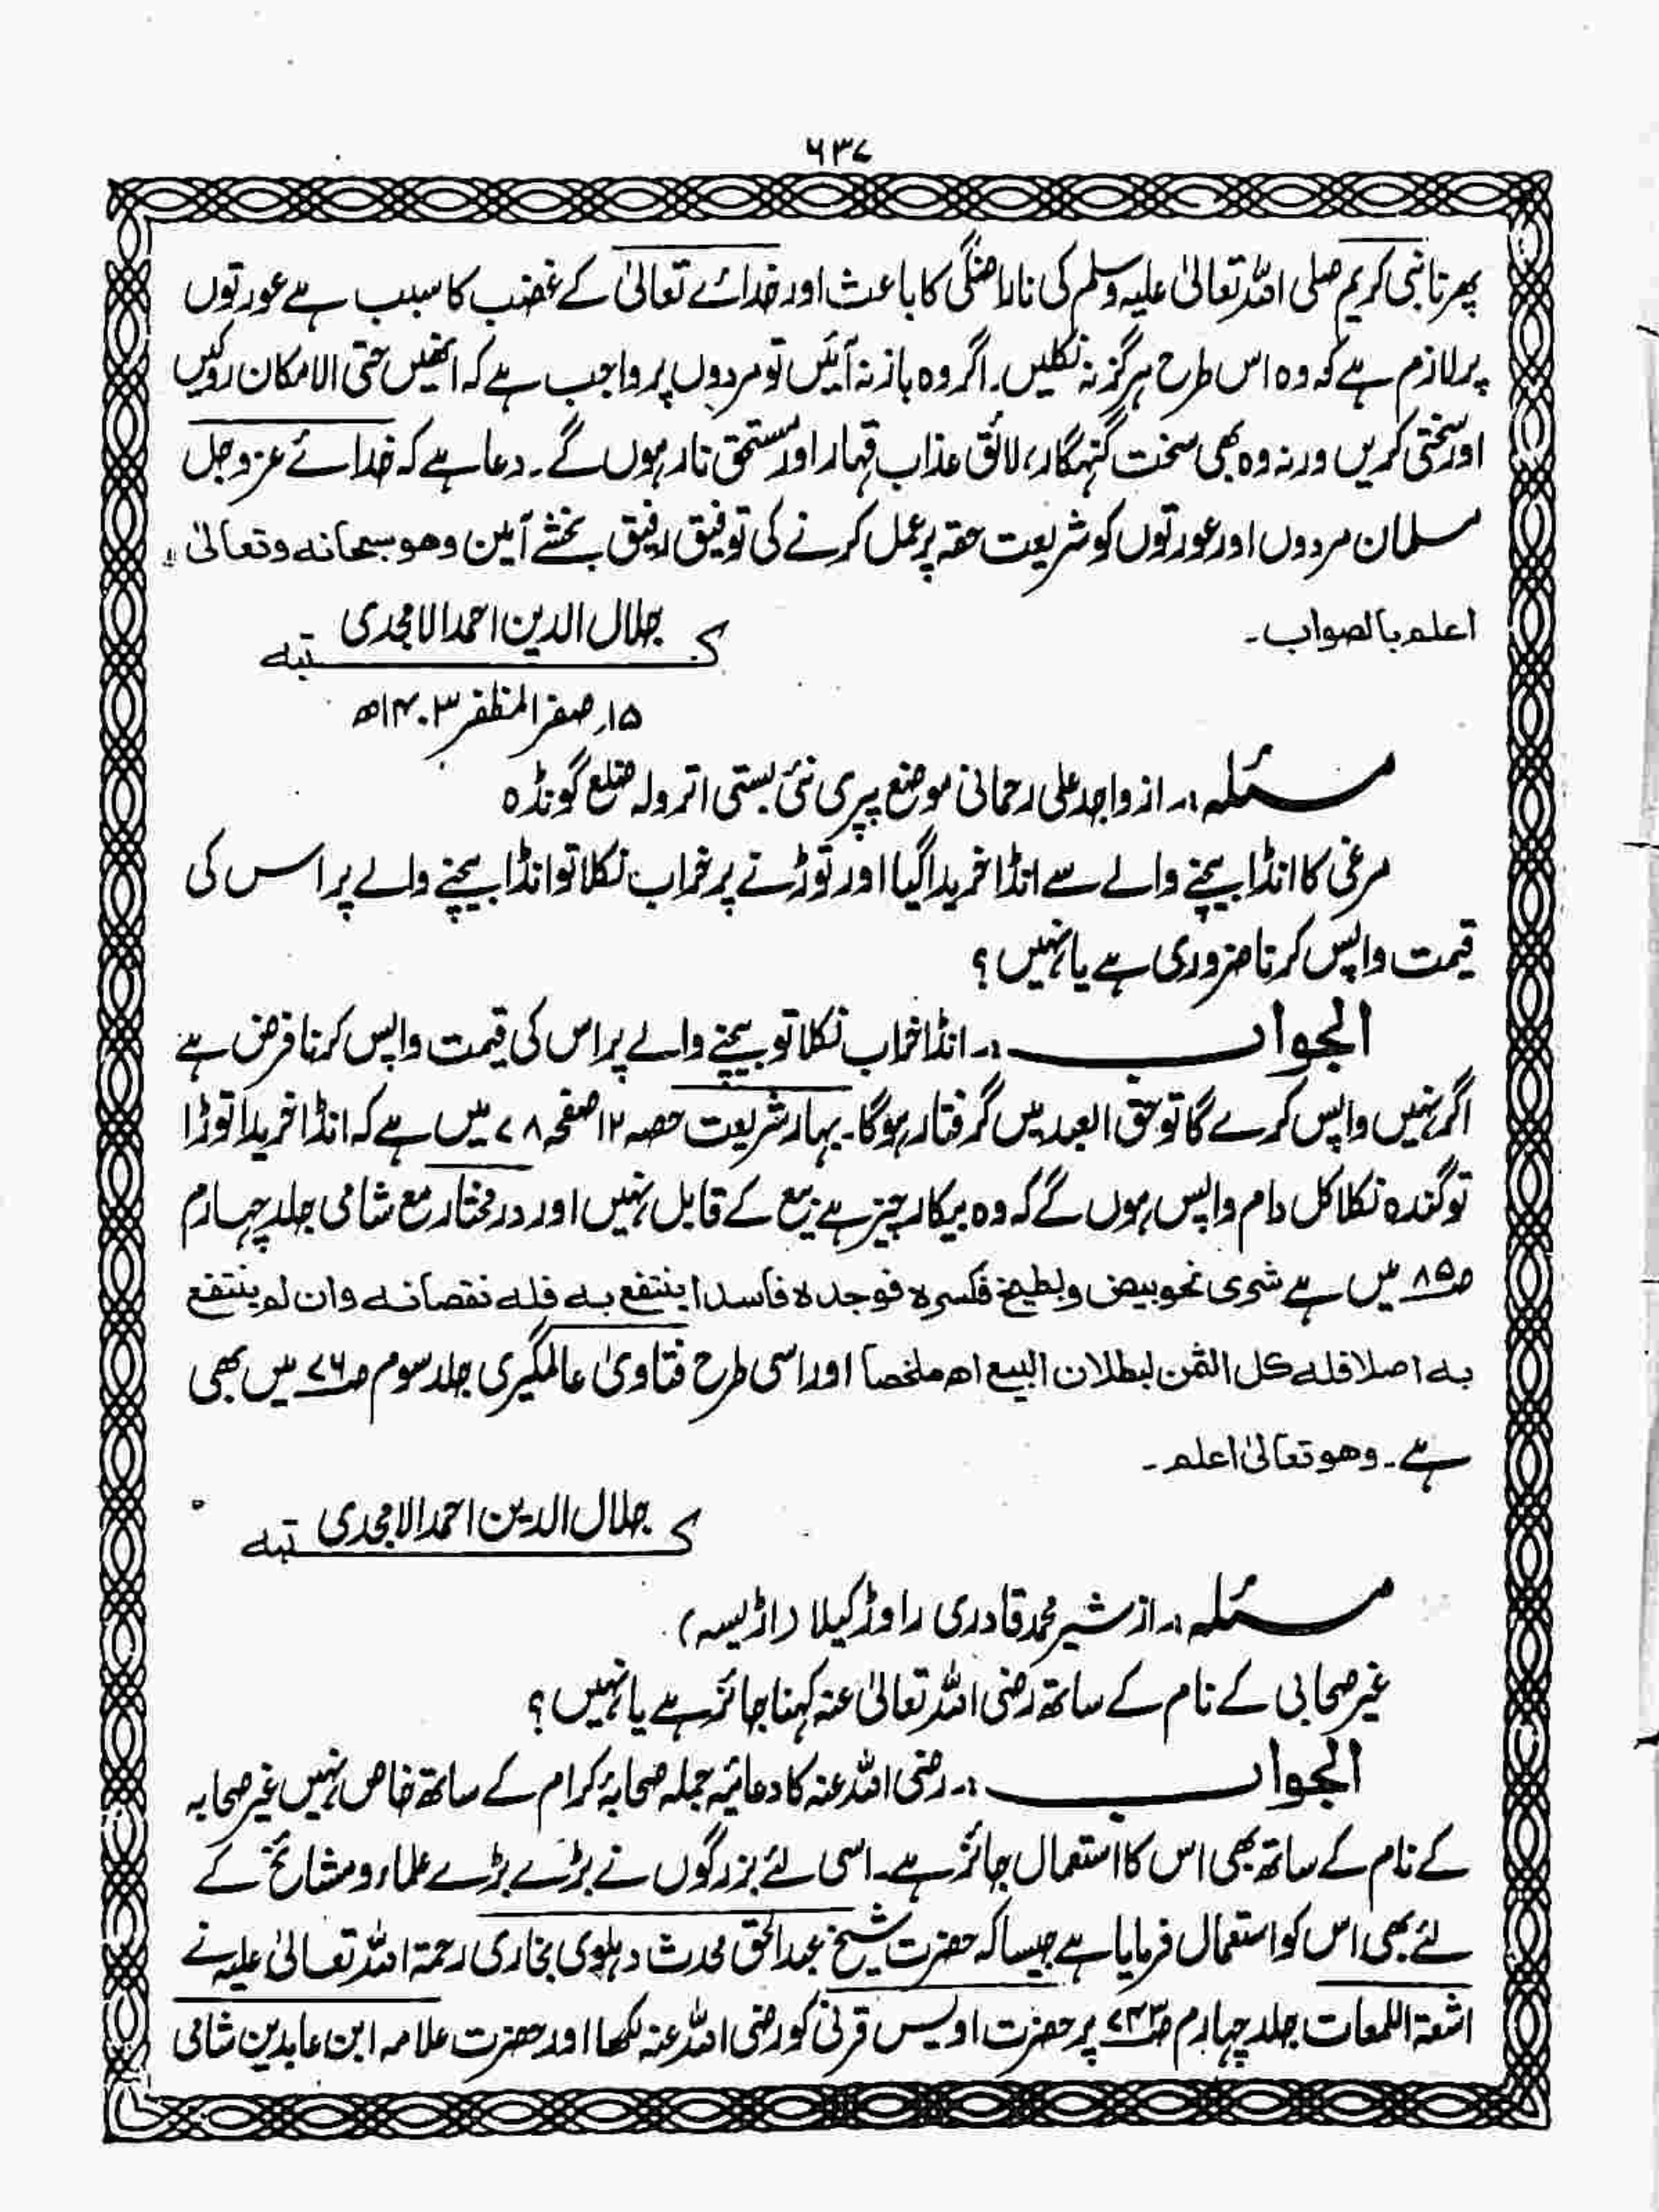 ۶۳۷
پھرنا نبی کریم صلی اللہ تعالیٰ علیہ وسلم کی ناراضگی کا باعث اور خدائے تعالیٰ کے غضب کا سبب ہے عورتوں
پر لازم ہے کہ وہ اس طرح ہرگز نہ نکلیں۔ اگر وہ باز نہ آئیں تو مردوں پر واجب ہے کہ انھیں حتی الامکان روکیں
اور سختی کریں ورنہ وہ بھی سخت گنہگار، لائق عذاب قہار اور مستحق نار ہوں گے۔ دعا ہے کہ خدائے عزوجل
مسلمان مردوں اور عورتوں کو شریعت حقہ پر عمل کرنے کی توفیق رفیق بخشے آمین وھو سبحانہ وتعالیٰ
اعلم بالصواب۔
کتبہ جلال الدین احمد الامجدی
۱۵؍ صفر المظفر ۱۴۰۳ھ
مسئلہ :۔ از واجد علی رحمانی موضع پپری نئی بستی اترولہ ضلع گونڈہ
مرغی کا انڈا بیچنے والے سے انڈا خریدا گیا اور توڑنے پر خراب نکلا تو انڈا بیچنے والے پر اس کی
قیمت واپس کرنا ضروری ہے یا نہیں؟
الجواب :۔ انڈا خراب نکلا تو بیچنے والے پر اس کی قیمت واپس کرنا فرض ہے
اگر نہیں واپس کرے گا تو حق العبد میں گرفتار ہوگا۔ بہار شریعت حصہ ۱۲ صفحہ ۷۸ میں ہے کہ انڈا خریدا توڑا
تو گندہ نکلا کل دام واپس ہوں گے کہ وہ بیکار چیز ہے بیع کے قابل نہیں اور در مختار مع شامی جلد چہارم
ص۸۵ میں ہے شری نحو بیض وبطیخ فکسرہ فوجدہ فاسدا ینتفع بہ فلہ نقصانہ وان لم ینتفع
بہ اصلا فلہ کل الثمن لبطلان البیع اھ ملخصا اور اسی طرح فتاویٰ عالمگیری جلد سوم ص۷۶ میں بھی
ہے۔ وھو تعالیٰ اعلم۔
کتبہ جلال الدین احمد الامجدی
مسئلہ :۔ از شیر محمد قادری راوڑکیلا (اڑیسہ)
غیر صحابی کے نام کے ساتھ رضی اللہ تعالیٰ عنہ کہنا جائز ہے یا نہیں؟
الجواب :۔ رضی اللہ عنہ کا دعائیہ جملہ صحابۂ کرام کے ساتھ خاص نہیں غیر صحابہ
کے نام کے ساتھ بھی اس کا استعمال جائز ہے۔ اسی لئے بزرگوں نے بڑے بڑے علماء و مشائخ کے
لئے بھی اس کو استعمال فرمایا ہے جیسا کہ حضرت شیخ عبدالحق محدث دہلوی بخاری رحمۃ اللہ تعالیٰ علیہ نے
اشعۃ اللمعات جلد چہارم ص۷۴۳ پر حضرت اویس قرنی کو رضی اللہ عنہ لکھا اور حضرت علامہ ابن عابدین شامی